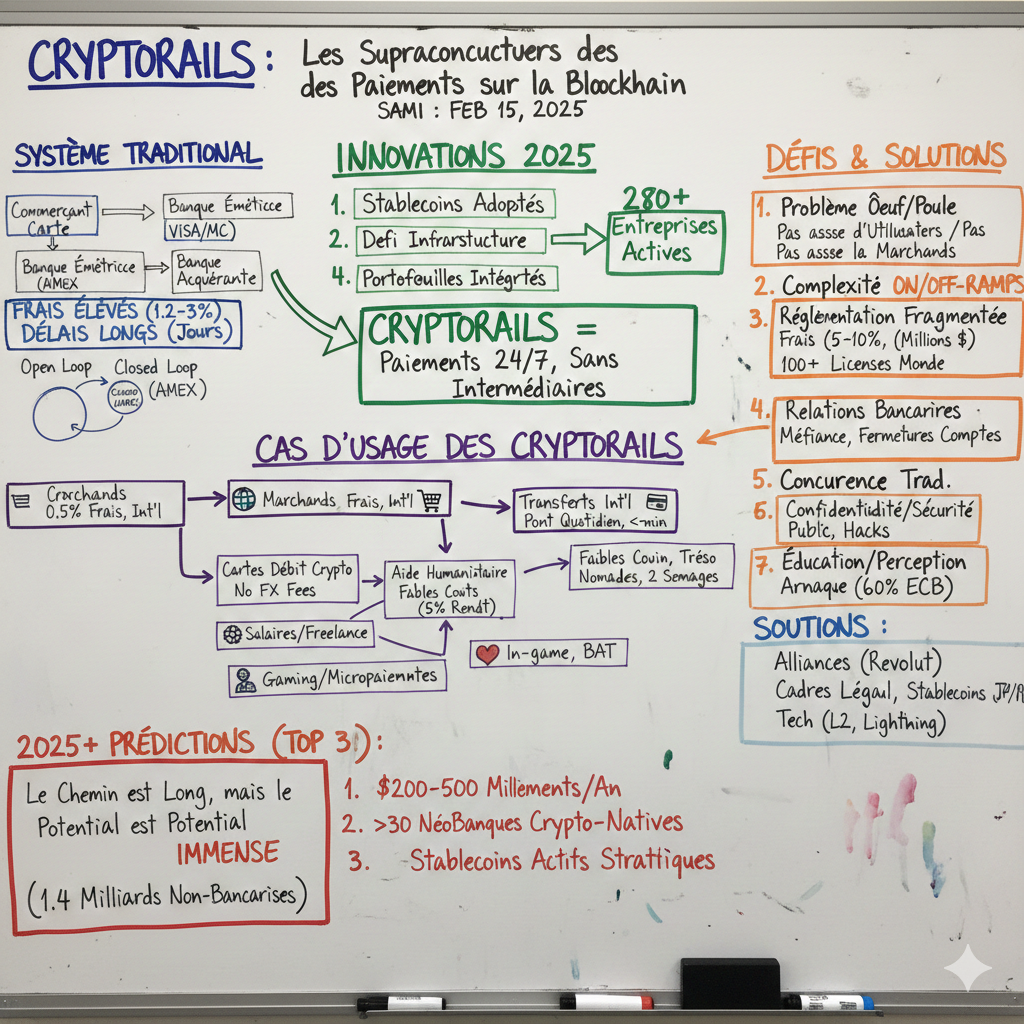 CRYPTORAILS :
Les Supraconcuctuers des
des Paiements sur la Bloockhain
SAMI : FEB 15, 2025
SYSTÈME TRADITIONAL
Commerçant
Carte
Banque Émèticce
(VISA/MC)
Banque Émêtricce
(AMEX
Banque
Acquérante
FRAIS ÉLÉVÉS (1.2-3%)
DÉLAIS LONGS (Jours)
Open Loop
Closed Loop
(AMEX)
INNOVATIONS 2025
1. Stablecoins Adoptés
2. Defi Infrarstucture
4. Portefeuilles Intégrtés
280+
Entreprises
Actives
CRYPTORAILS =
Paiements 24/7, Sans
Intermédiaires
DÉFIS & SOLUTIONS
1. Problème Ôeuf/Poule
Pas assse d'Utlluaters / Pas
Pas assse la Marchands
2. Complexité ON/OFF-RAMPS
3. Réglementation Fragmentée
Frais (5-10%, (Millions $)
100+ Licenses Monde
4. Relations Bancarires
Méfiance, Fermetures Comptes
5. Concurence Trad.
6. Confidentiudité/Sécurité
Public, Hacks
7. Éducation/Perception
Arnaque (60% ECB)
SOUTIONS :
Alliances (Revolut)
Cadres Légaul, Stablecoins
Tech (L2, Lighthing)
CAS D'USAGE DES CRYPTORAILS
Crorchands
0.5% Frais, Int'l
Marchands, Frais, Int'l
Transferts Int'l
Pont Quotidien, <-min
Cartes Débit Crypto
No FX Fees
Aide Humanitaire
Fables Couts
(5% Rendt)
Faibles Couin, Tréso
Nomades, 2 Semages
Salaires/Freelance
Gaming/Micropaiemntes
In-game, BAT
2025+ PRÉDICTIONS (TOP 3):
Le Chemin est Long, mais le
Potential est Potential
IMMENSE
(1.4 Milliards Non-Bancarises)
1. $200-500 Millements/An
2. >30 NéoBanques Crypto-Natives
3. Stablecoins Actifs Strattiques